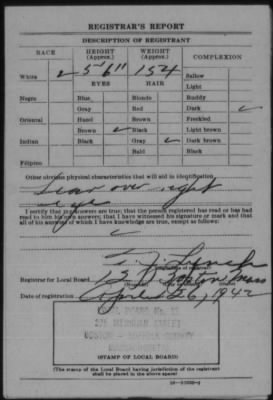 REGISTRAR'S REPORT
DESCRIPTION OF REGISTRANT
RACE HEIGHT (Approx.) WEIGHT (Approx.) COMPLEXION
White 5'6" 154 Sallow
EYES HAIR Light
Negro Blue Blonde Ruddy
Gray Red Dark
Oriental Hazel Brown Freckled
Brown Black Light brown
Indian Black Gray Dark brown
Bald Black
Filipino
Other obvious physical characteristics that will aid in identification
Scar over right
eye
I certify that my answers are true; that the person registered has read or has had
read to him his own answers; that I have witnessed his signature or mark and that
all of his answers of which I have knowledge are true, except as follows:
Lynch
Registrar for Local Board 13 Boston Mass
Date of registration April 26, 1942
LOCAL BOARD No.
MERIDIAN STREET
BOSTON - SUFFOLK COUNTY
MASSACHUSETTS
(STAMP OF LOCAL BOARD)
(The stamp of the Local Board having jurisdiction of the registrant
shall be placed in the above space)